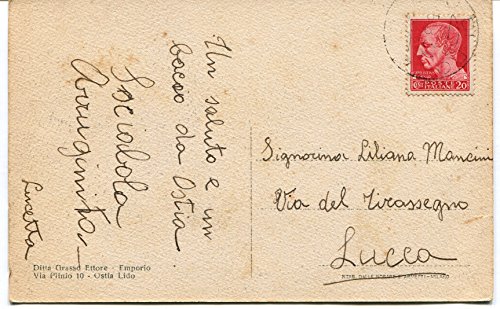 Un saluto e un
bacio da Ostia
Lucetta
Ditta Grasso Ettore - Emporio
Via Plinio 10 - Ostia Lido
POSTE ITALIANE 20
Signorina Liliana Mancini
Via del Tirassegno
Lucca